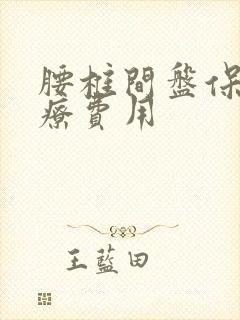 腰柱間盤保
療費用
王藍田